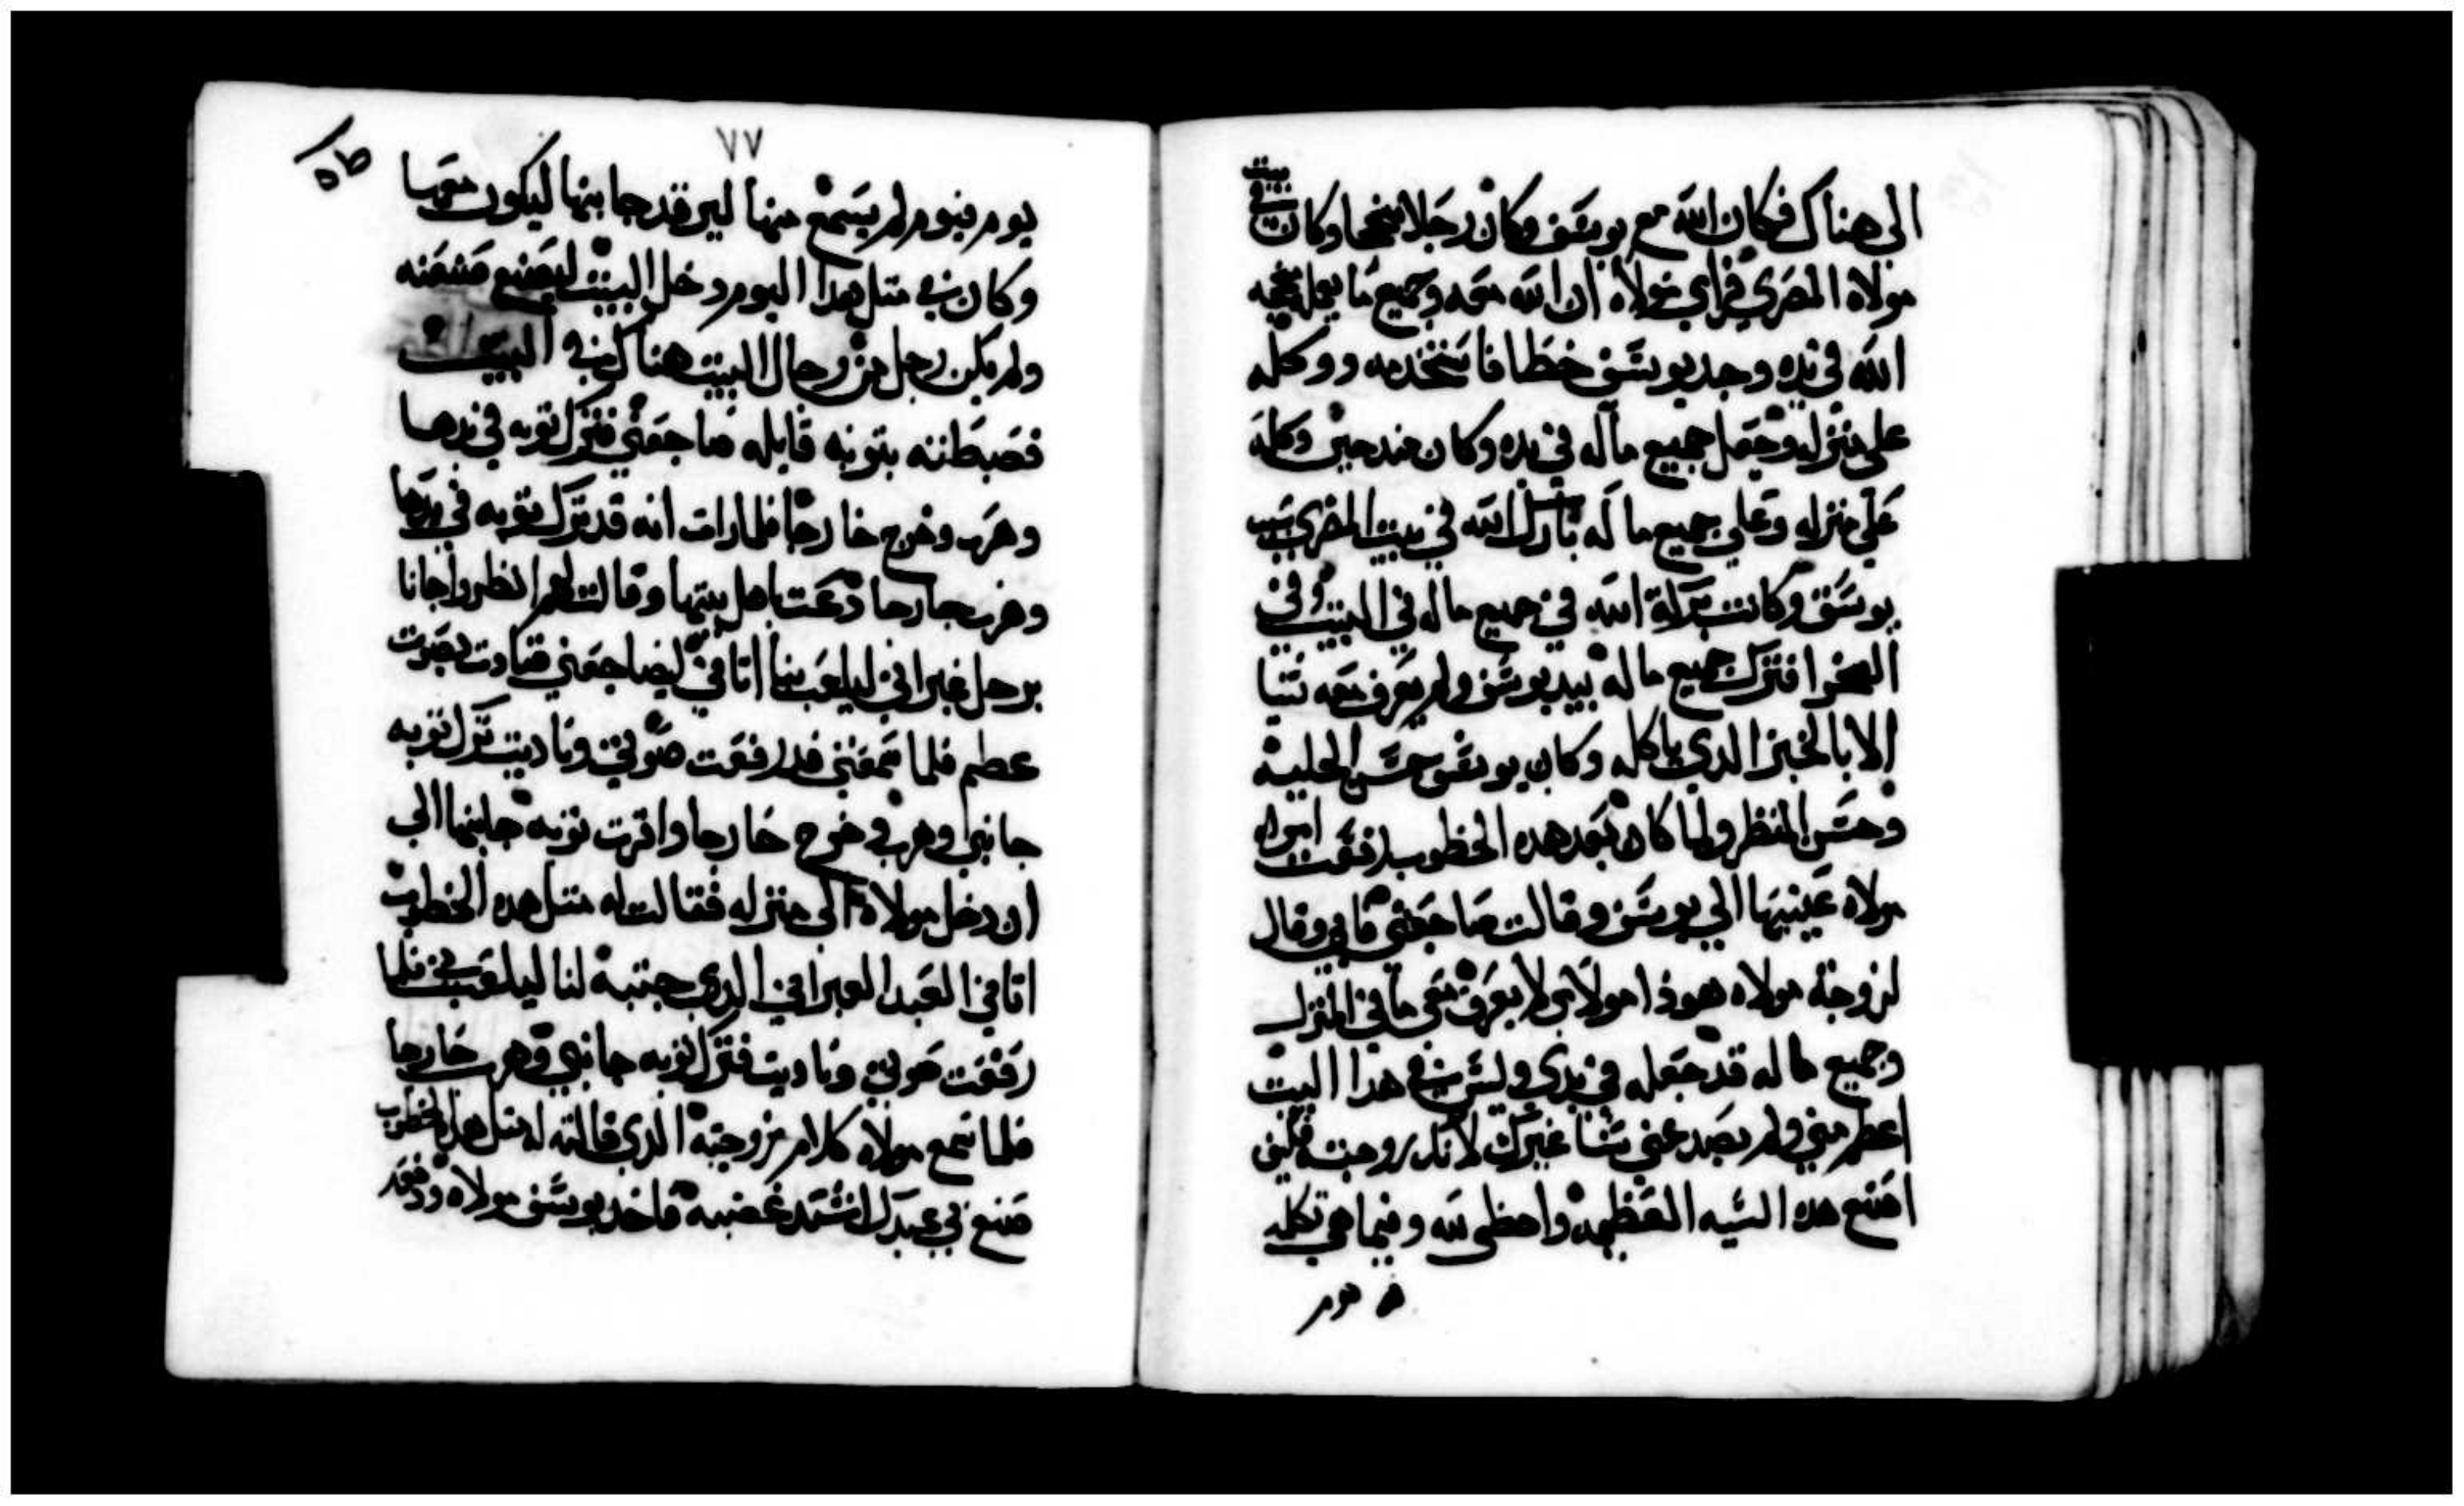 الى هناك فكان الله مع يوسف وكان رجلا منجحا وكان في بيت
مولاه المصري فراي مولاه ان الله معه وجميع ما يعمل ينجحه
الله في يده وجد يوسف حظا فاستخدمه ووكله
على منزله وجعل جميع ماله في يده وكان منذ حين وكله
علي منزله وعلي جميع ما له بارك الله في بيت المصري بسبب
يوسف وكانت بركة الله في جميع ماله في البيت وفي
الصحرا فترك جميع ماله بيد يوسف ولم يعرف معه شيا
الا بالخبز الدي ياكله وكان يوسف حسن الحلية
وحسن المنظر ولما كان بعد هده الخطوب رفعت امراه
مولاه عينيها الي يوسف وقالت ضاجعني فابي وقال
لزوجة مولاه هوذا مولاي لا يعرف معي ما في المنزل
وجميع ما له قد جعله في يدي وليس في هدا البيت
اعظم مني ولم يصد عني شيا غيرك لانك زوجته فكيف
اصنع هده السيه العظيمة واخطى لله وفيما هي تكلمه
يوم
٧٧
يوم فيوم لم يسمع منها ليرقد جانبها ليكون معها
وكان في متل هدا اليوم دخل البيت ليصنع صنعته
ولم يكن رجل من رجال البيت هناك في البيت
فضبطته بتوبه قايله ضاجعني فترك توبه في يدها
وهرب وخرج خارجا فلما رات انه قد ترك توبه في يدها
وهرب خارجا دعت باهل بيتها وقالت لهم انظروا جانا
برجل عبراني ليلعب بنا اتاني ليضاجعني فناديت بصوت
عظيم فلما سمعني قد رفعت صوتي وناديت ترك توبه
جانبي وهرب وخرج خارجا واقرت توبه جانبها الي
ان دخل مولاه الى منزله فقالت له متل هده الخطوب
اتاني العبد العبراني الدي جبته لنا ليلعب بي فلما
رفعت صوتي وناديت فترك توبه جانبي وهرب خارجا
فلما سمع مولاه كلام زوجته الدي قالته له متل هده الخطوب
صنع بي عبدك اشتد غضبه فاخد يوسف مولاه ودفعه